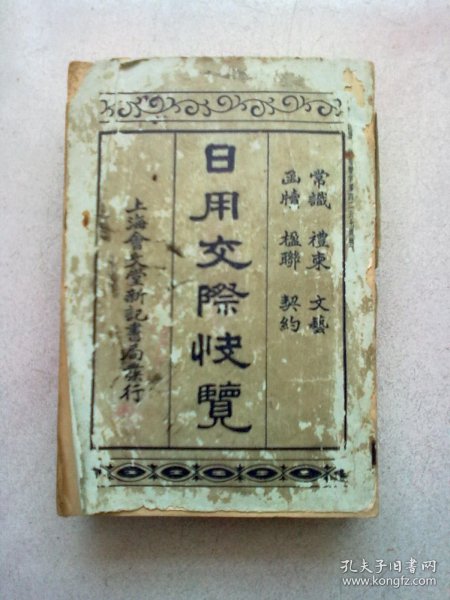 常識 禮柬 文藝
函牘 楹聯 契約
日用交際快覽
上海會文堂新記書局發行
孔夫子旧书网
www.kongfz.com